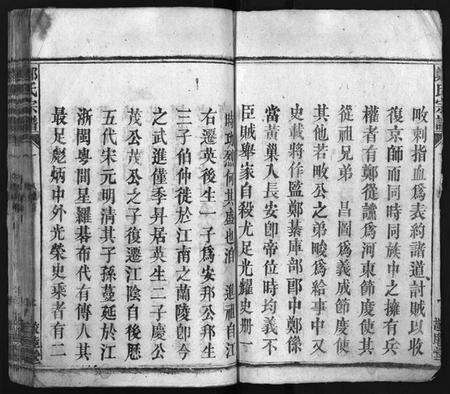 鄭氏宗譜
畋刺指血爲表約諸道討賊以收
復京師而同時同族中之擁有兵
權者有鄭從讜爲河東節度使其
從祖兄弟 昌圖爲義成節度使
其他若畋公之弟畯爲給事中又
史載將作監鄭綦庫部郎中鄭係
當黃巢入長安卽帝位時均義不
臣賊舉家自殺尤足光耀史册一
時功烈何其盛也洎 遷祖自江
右遷英後生一子爲安邦公邦生
三子伯仲徙於江南之蘭陵卽今
之武進僅季昇居英生二子慶公
茂公茂公之子復遷江陰自後歷
五代宋元明清其子孫蔓延於江
浙閩粵間星羅碁布代有傳人其
最足彪炳中外光榮史乘者有二